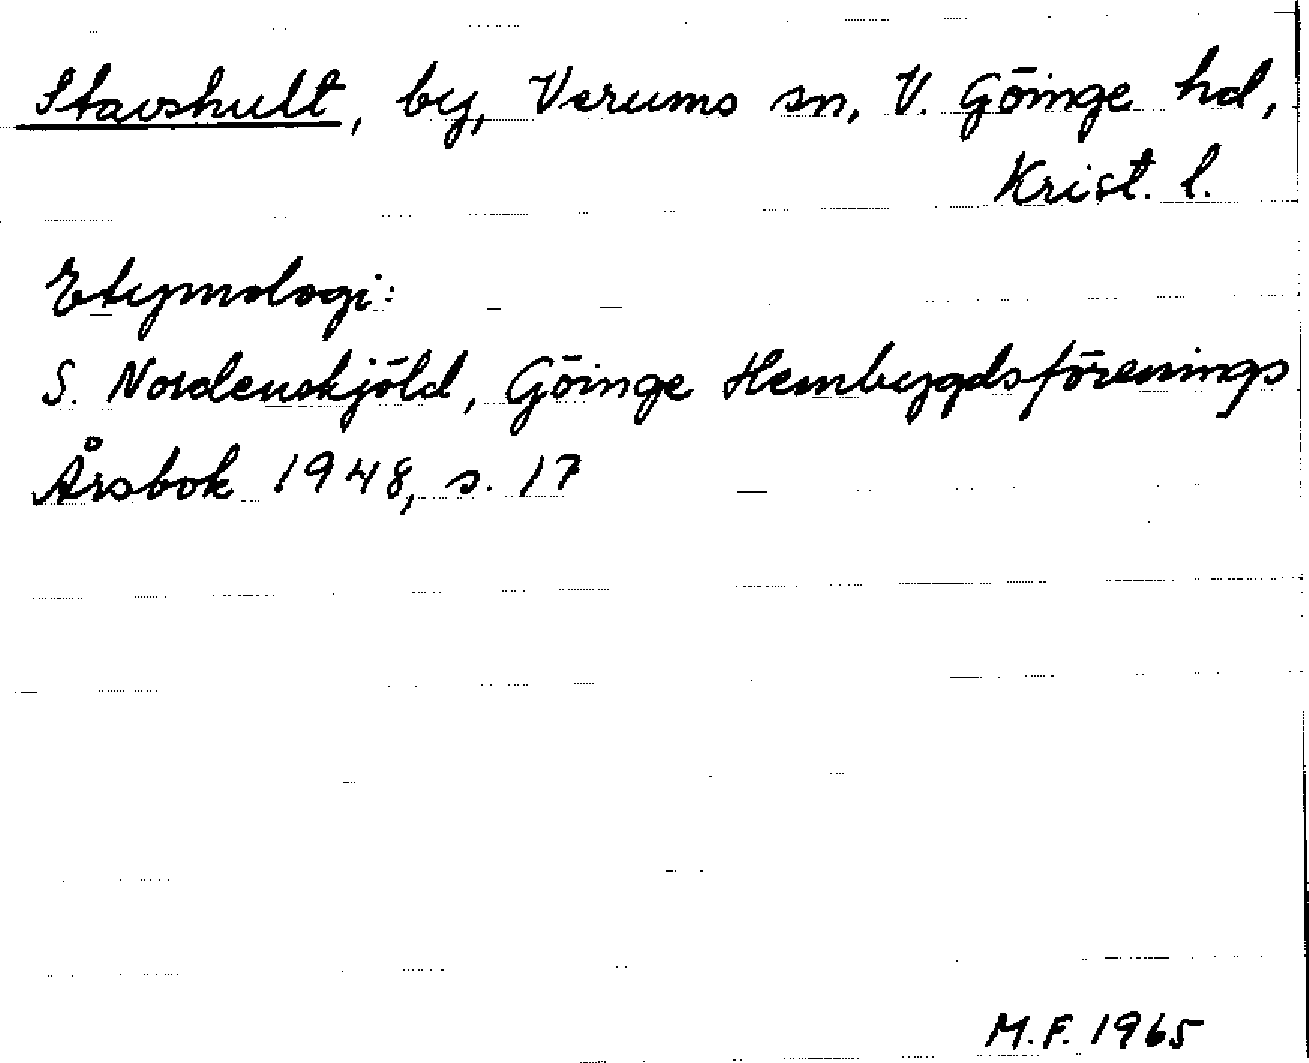 Stavshult, by, Verums sn, V. Göinge hd,
Krist. l.
Etymologi:
S. Nordenskjöld, Göinge Hembygdsförenings
Årsbok 1948, s. 17
M.F. 1965